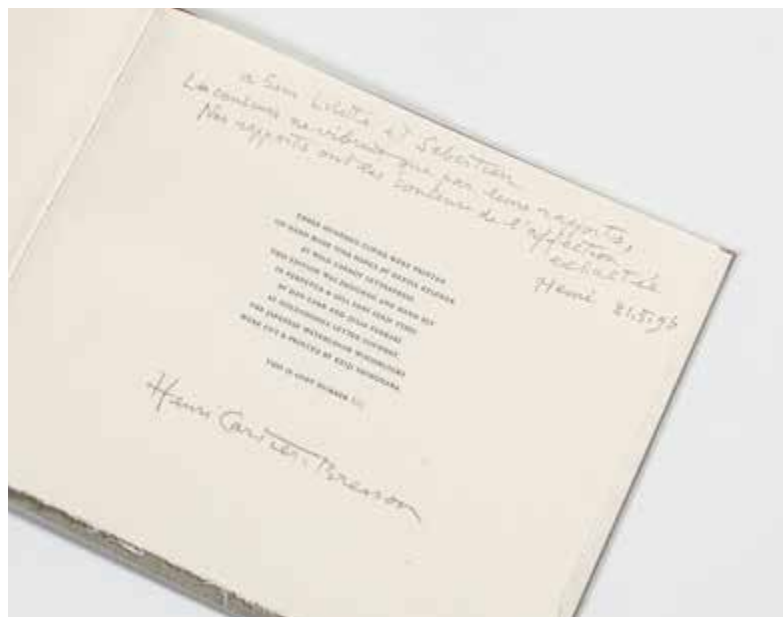 a Sam Lisette et Sebastian
La couleur ne vibre que par leurs rapports,
Nos rapports ont la couleur de l'affection
Henri 21.5.96
THREE HUNDRED COPIES WERE PRINTED
ON HAND MADE
AT WILD CARROT LETTERPRESS
THIS EDITION WAS DESIGNED AND HAND SET
IN PERPETUA & GILL SANS TYPE
BY DAN CARR AND JULIA FERRARI
AT GOLGONOOZA LETTER FOUNDRY.
THE JAPANESE WATERCOLOR WOODCUTS
WERE CUT & PRINTED BY KEIJI SHINOHARA.
THIS IS COPY NUMBER
Henri Cartier-Bresson